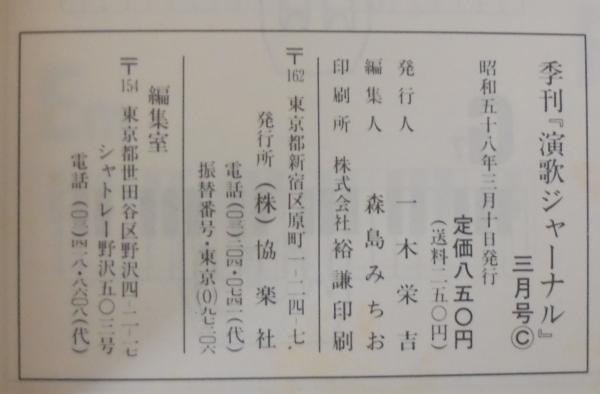 季刊『演歌ジャーナル』
三月号Ⓒ
昭和五十八年三月十日発行
定価八五〇円
(送料二五〇円)
発行人 一木栄吉
編集人 森島みちお
印刷所 株式会社裕謙印刷
〒162 東京都新宿区原町一-二四-七
発行所 (株)協楽社
電話(〇三)二〇四・〇七四一(代)
振替番号・東京(0)九七二〇六
編集室
〒154 東京都世田谷区野沢四-二-一七
シャトレー野沢五〇三号
電話(〇三)四一八・八六〇八(代)